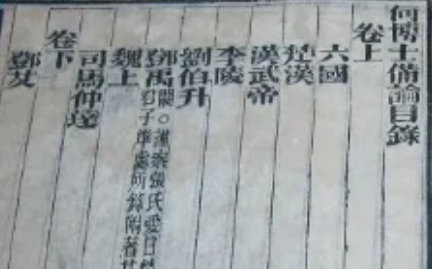 何博士備論目錄
卷上
六國
楚漢
漢武帝
李陵
劉伯升
鄧禹闕○謹案張氏愛日
君子準處所錄附著
魏上
司馬仲達
卷下
鄧艾